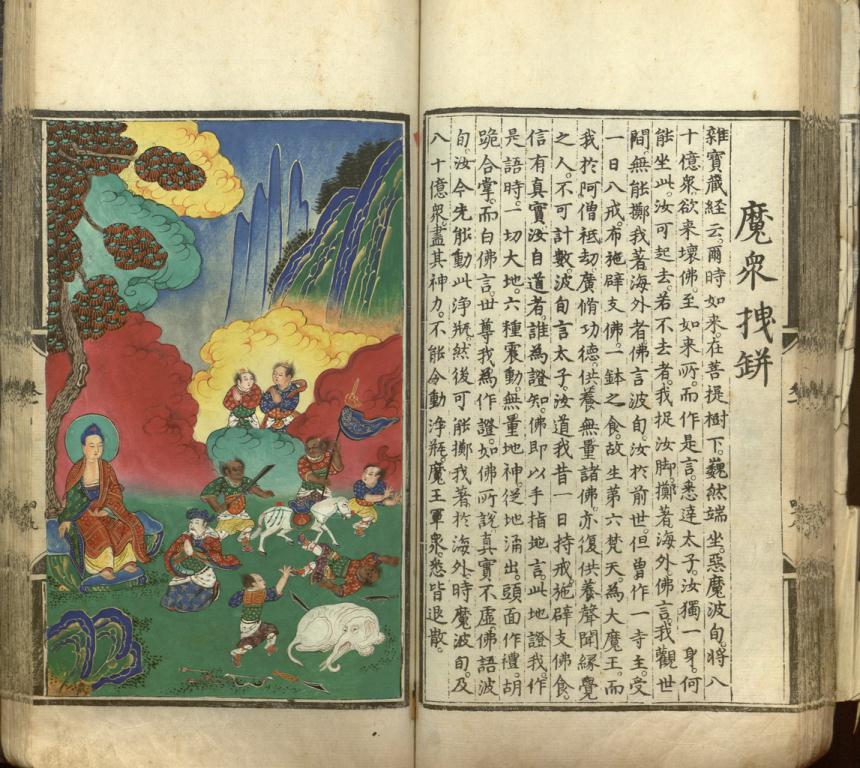 魔衆拽缾
雜寶藏經云。爾時如來。在菩提樹下。巍然端坐。惡魔波旬。將八
十億衆欲來壞佛。至如來所。而作是言。悉達太子。汝獨一身。何
能坐此。汝可起去。若不去者。我捉汝脚。擲著海外。佛言。我觀世
間。無能擲我著海外者。佛言波旬。汝於前世。但曾作一寺主。受
一日八戒。布施辟支佛。一鉢之食。故生第六梵天。為大魔王。而
我於阿僧祗劫。廣脩功德。供養無量諸佛。亦復供養聲聞緣覺
之人。不可計數。波旬言太子。汝道我昔一日持戒。施辟支佛食。
信有真實。汝自道者。誰為證知。佛即以手指地言。此地證我。作
是語時。一切大地。六種震動。無量地神。從地涌出。頭面作禮。胡
跪合掌。而白佛言。世尊我為作證。如佛所說。真實不虛。佛語波
旬。汝今先能動此淨瓶。然後可能擲我著於海外。時魔波旬。及
八十億衆。盡其神力。不能令動淨瓶。魔王軍衆。悉皆退散。